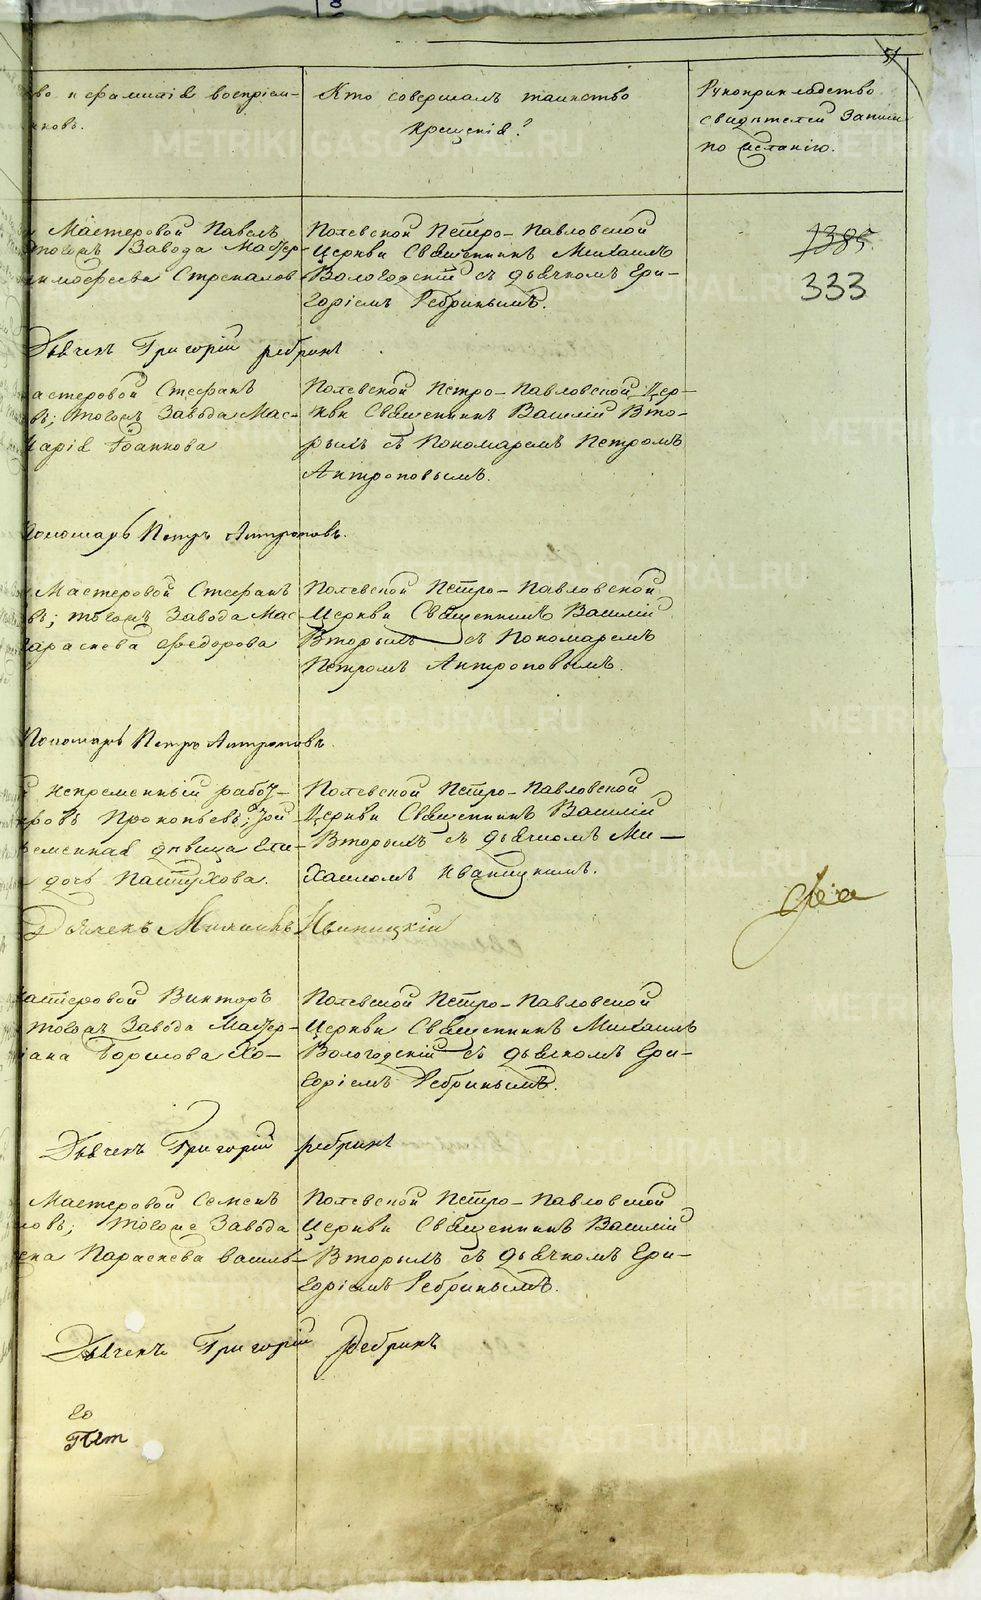 51
во и фамилія воспріем-
никовъ.
Кто совершалъ таинство
крещенія?
Рукоприкладство
свидѣтелей записи
по желанію.
Мастеровой Павелъ
тогожъ Завода Мастер-
Тимофеева Стрекалов
Полевской Петро-Павловской
Церкви Священникъ Михаилъ
Вологодскій съ дьячкомъ Гри-
горіемъ Ребринымъ.
1385
333
Дьячекъ Григорій ребринъ
мастеровой Стефанъ
въ; тогожъ Завода Мас-
Марія Іоаннова
Полевской Петро-Павловской Цер-
кви Священникъ Василій Вто-
рымъ съ Пономаремъ Петромъ
Антроповымъ.
Пономарь Петръ Антроповъ.
Мастеровой Стефанъ
въ; тогожъ Завода Мас-
Параскева Федорова
Полевской Петро-Павловской
Церкви Священникъ Василій
Вторымъ съ Пономаремъ
Петромъ Антроповымъ.
Пономарь Петръ Антроповъ.
непременный работ-
Прокопьевъ;
дѣвица Ели-
дочь Пастухова.
Полевской Петро-Павловской
Церкви Священникъ Василій
Вторымъ съ дьячкомъ Ми-
хаиломъ Иваницкимъ.
Дьячекъ Михаилъ Иваницкій
мастеровой Викторъ
тогожъ Завода Мастер-
Борисова Хо-
Полевской Петро-Павловской
Церкви Священникъ Михаилъ
Вологодскій съ дьячкомъ Гри-
горіемъ Ребринымъ.
Дьячекъ Григорій ребринъ
Мастеровой Семенъ
ловъ; тогоже Завода
Параскева Василь-
Полевской Петро-Павловской
Церкви Священникъ Василій
Вторымъ съ дьячкомъ Гри-
горіемъ Ребринымъ.
Дьячекъ Григорій Ребринъ